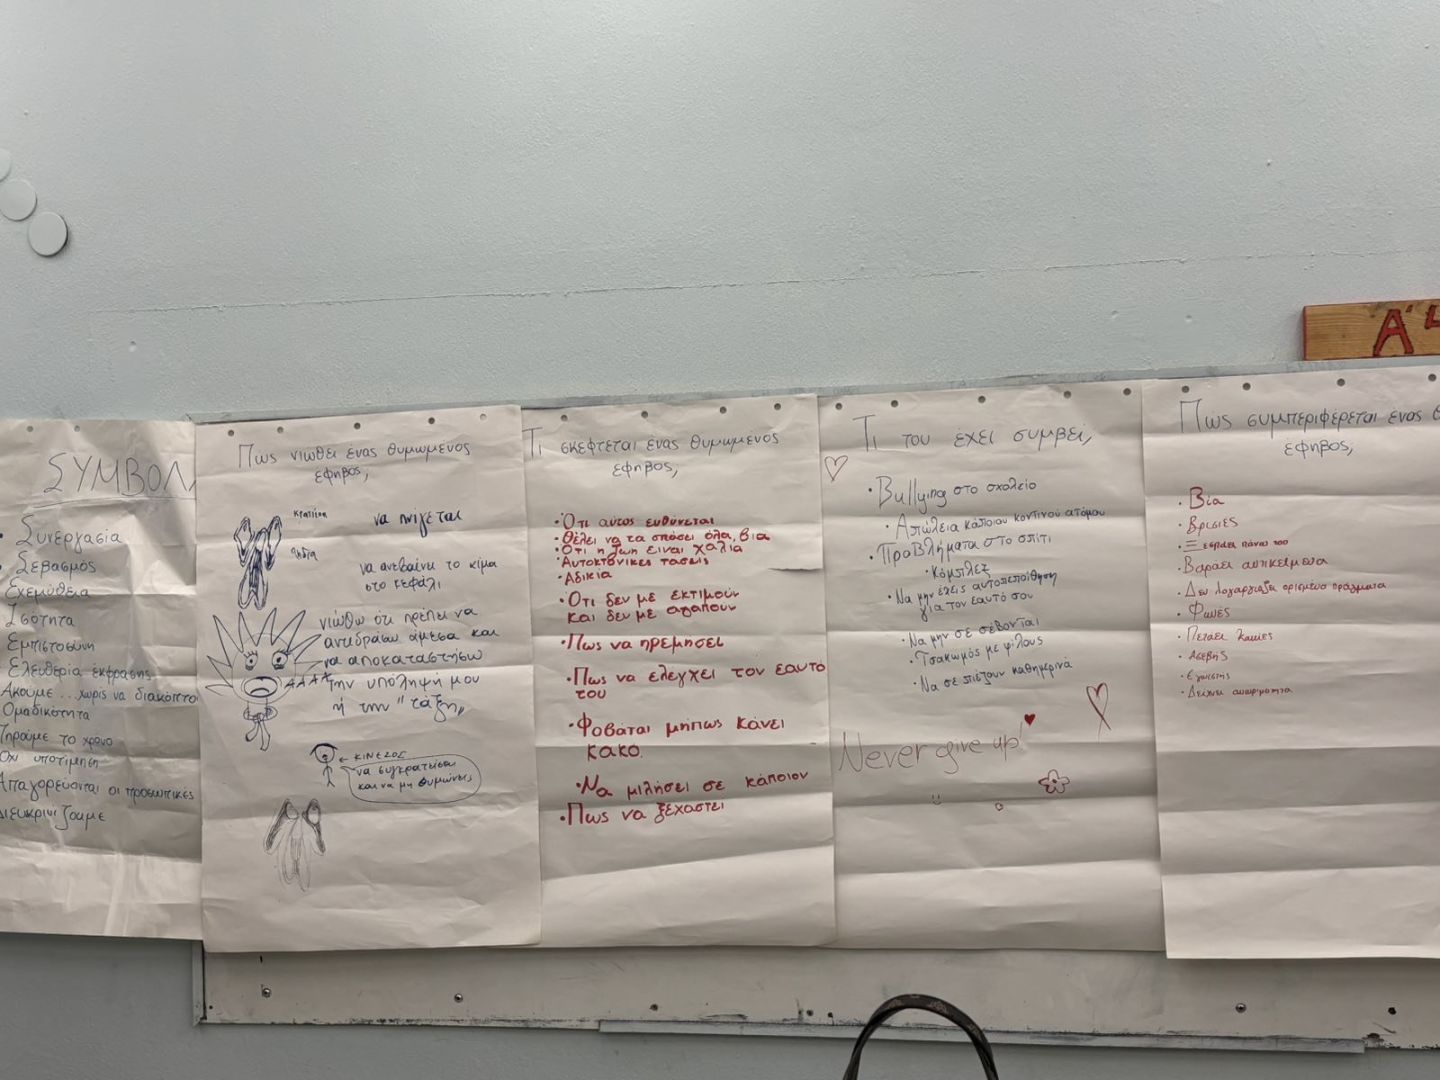 ΣΥΜΒΟΛ
• Συνεργασία
• Σεβασμός
Εχεμύθεια
Ισότητα
Εμπιστοσύνη
Ελευθερία έκφρασης
Ακούμε... χωρίς να διακόπτο
Ομαδικότητα
Τηρούμε το χρόνο
Όχι υποτίμηση
Απαγορεύονται οι προσωπικές
Διευκρινίζουμε
Πως νιώθει ένας θυμωμένος
έφηβος;
να πνίγεται
Αηδία
να ανεβαίνει το αίμα
στο κεφάλι
νιώθω ότι πρέπει να
αντιδράσω άμεσα και
να αποκαταστήσω
την υπόληψή μου
ή την "τάξη"
ΑΑΑΑ
← ΚΙΝΕΖΟΣ
να συγκρατείσαι
και να μη θυμώνεις
Τι σκέφτεται ένας θυμωμένος
έφηβος;
• Ότι αυτός ευθύνεται
• Θέλει να τα σπάσει όλα, βια
• Ότι η ζωή είναι χάλια
• Αυτοκτονικές τάσεις
• Αδικία
• Ότι δεν με εκτιμούν
και δεν με αγαπούν
• Πως να ηρεμήσει
• Πως να ελέγχει τον εαυτό
του
• Φοβάται μήπως κάνει
κακό.
• Να μιλήσει σε κάποιον
• Πως να ξεχαστεί
Τι του έχει συμβεί;
• Bullying στο σχολείο
• Απώλεια κάποιου κοντινού ατόμου
• Προβλήματα στο σπίτι
• Κόμπλεξ
• Να μην έχεις αυτοπεποίθηση
για τον εαυτό σου
• Να μην σε σέβονται
• Τσακωμός με φίλους
• Να σε πιέζουν καθημερινά
Never give up!
Πώς συμπεριφέρεται ένας θ
έφηβος;
• Βία
• Βρισιές
• Ξεσπάει πάνω του
• Βαράει αντικείμενα
• Δεν λογαριάζει ορισμένα πράγματα
• Φωνές
• Πετάει
• Ασεβής
• Εγωιστής
• Δείχνει ανωριμότητα
Α'4